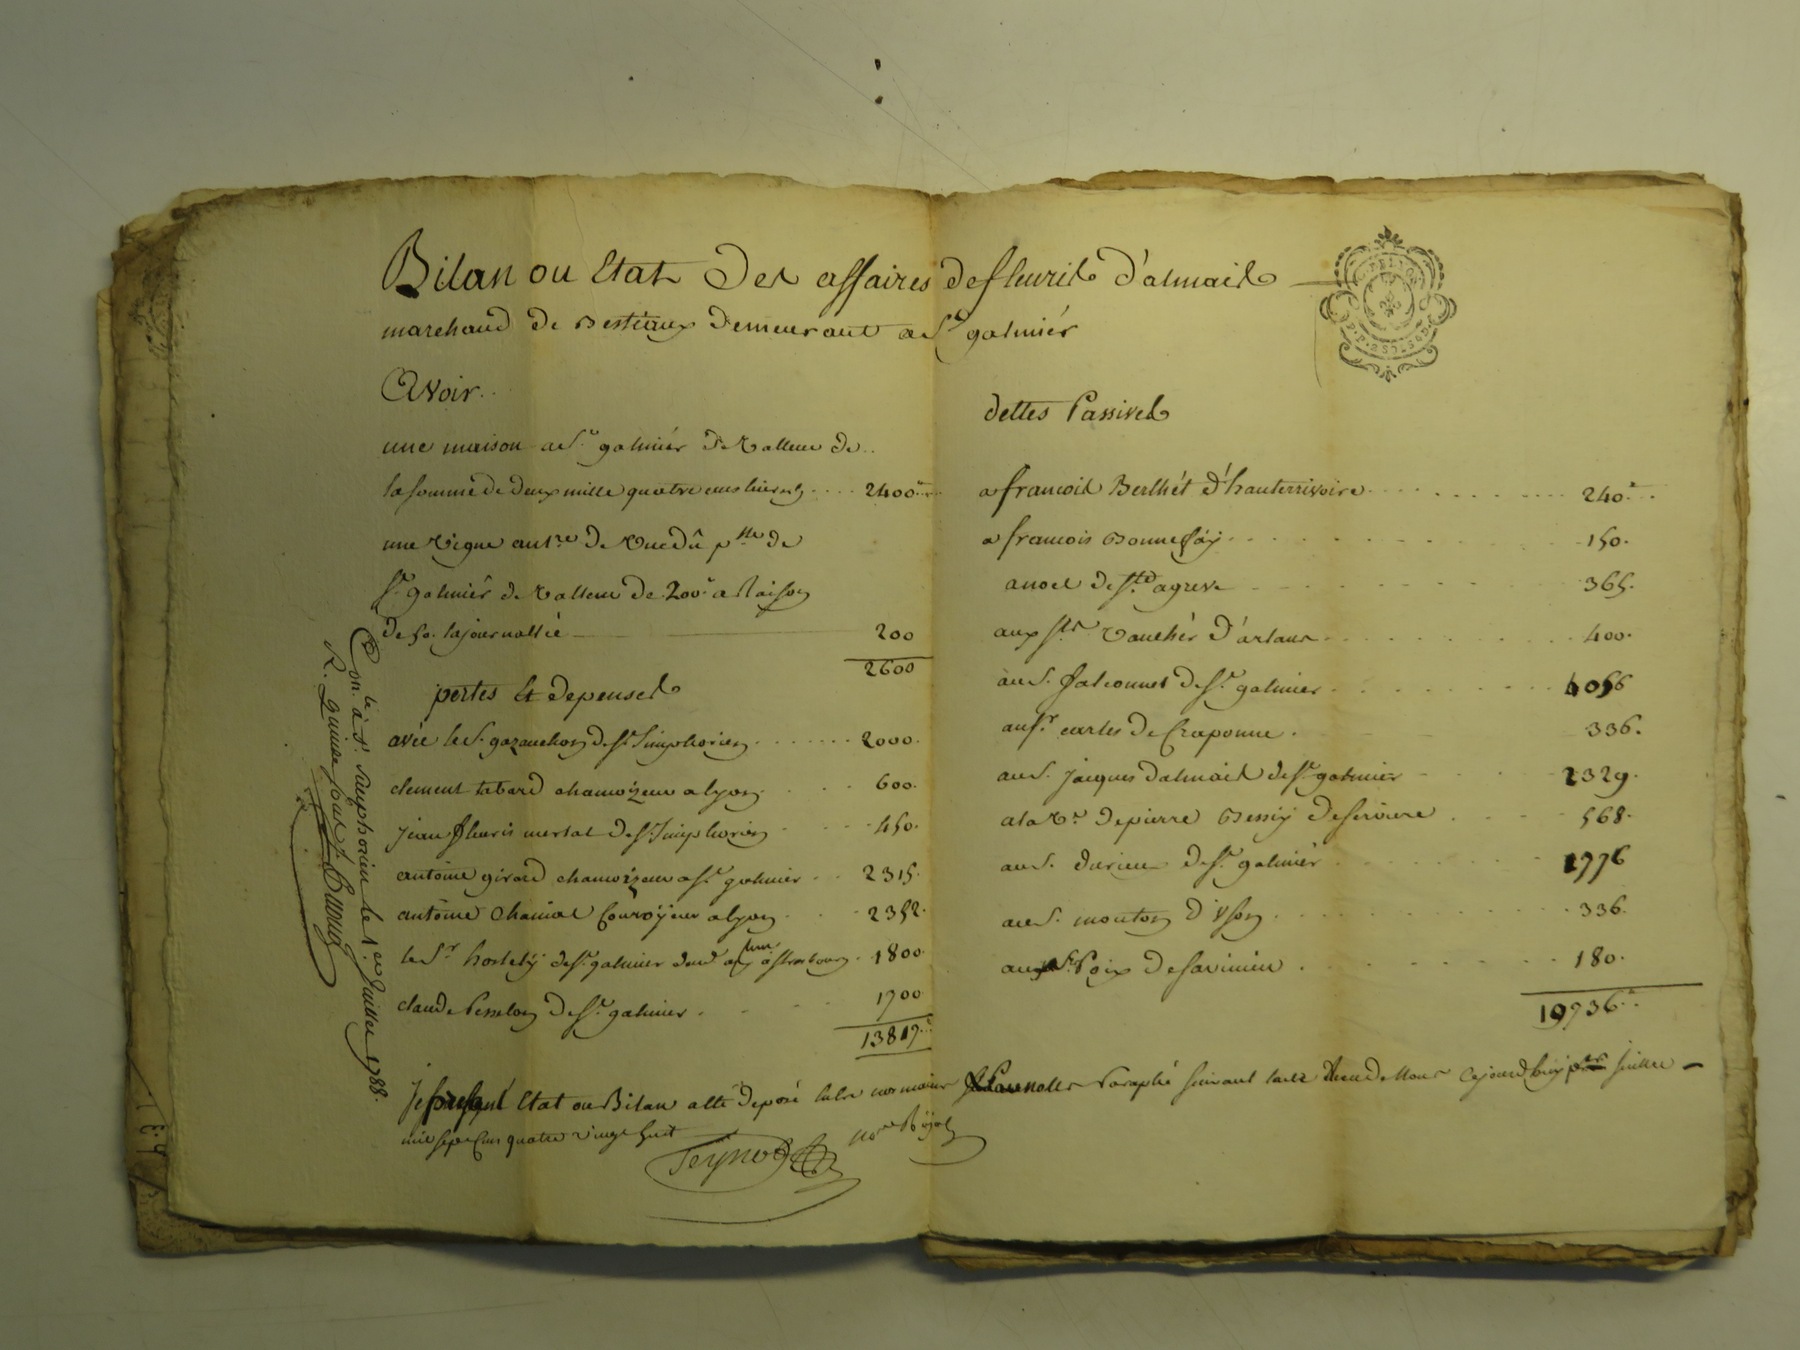 Bilan ou Etat Des affaires de fleuris D'almais
marchand de Bestiaux Demeurant a St galmiér
Avoir
une maison a St galmiér De Valleur de
la somme de deux mille quatre cens livres 2400
une Vigne
St galmiér de Valleur de 200 a Raison
de 50 la journallié 200
2600
pertes Et depenses
avéc le S. gazanchon de St Simphorien 2000
clement tabard chamoizeur a lyon 600
jean fleuris mersat de St Simphorien 450
antoine girard chamoizeur a St galmier 2315
antoine Chaniat Couroÿeur a lyon 2352
le Sr de St galmier a Strasbourg 1800
claude Pesselon de St galmier 1700
13817
dettes Passives
a francois Berthét d'hauterrivoire 240
a francois Bonnefoÿ 150
a noel de St agreve 365
aux Srs Vauchér d'arlanc 400
au S. falconnet de St galmier 4056
au Sr cartes de Craponne 336
au S. jacques dalmais de St galmier 2329
a la Ve de pierre Bessÿ de 568
au S. durieu de St galmiér 1776
au S. mouton d'ÿson 336
au S. Poix de savinieu 180
19736
Le presant Etat ou Bilan a été deposé Paraphé suivant l'acte Cejourd'huÿ juillet
mil sept Cens quatre vingt huit
nore Roÿal
Con.lé à St. Simphorien le 1er Juillet 1788.
R. quinze sous